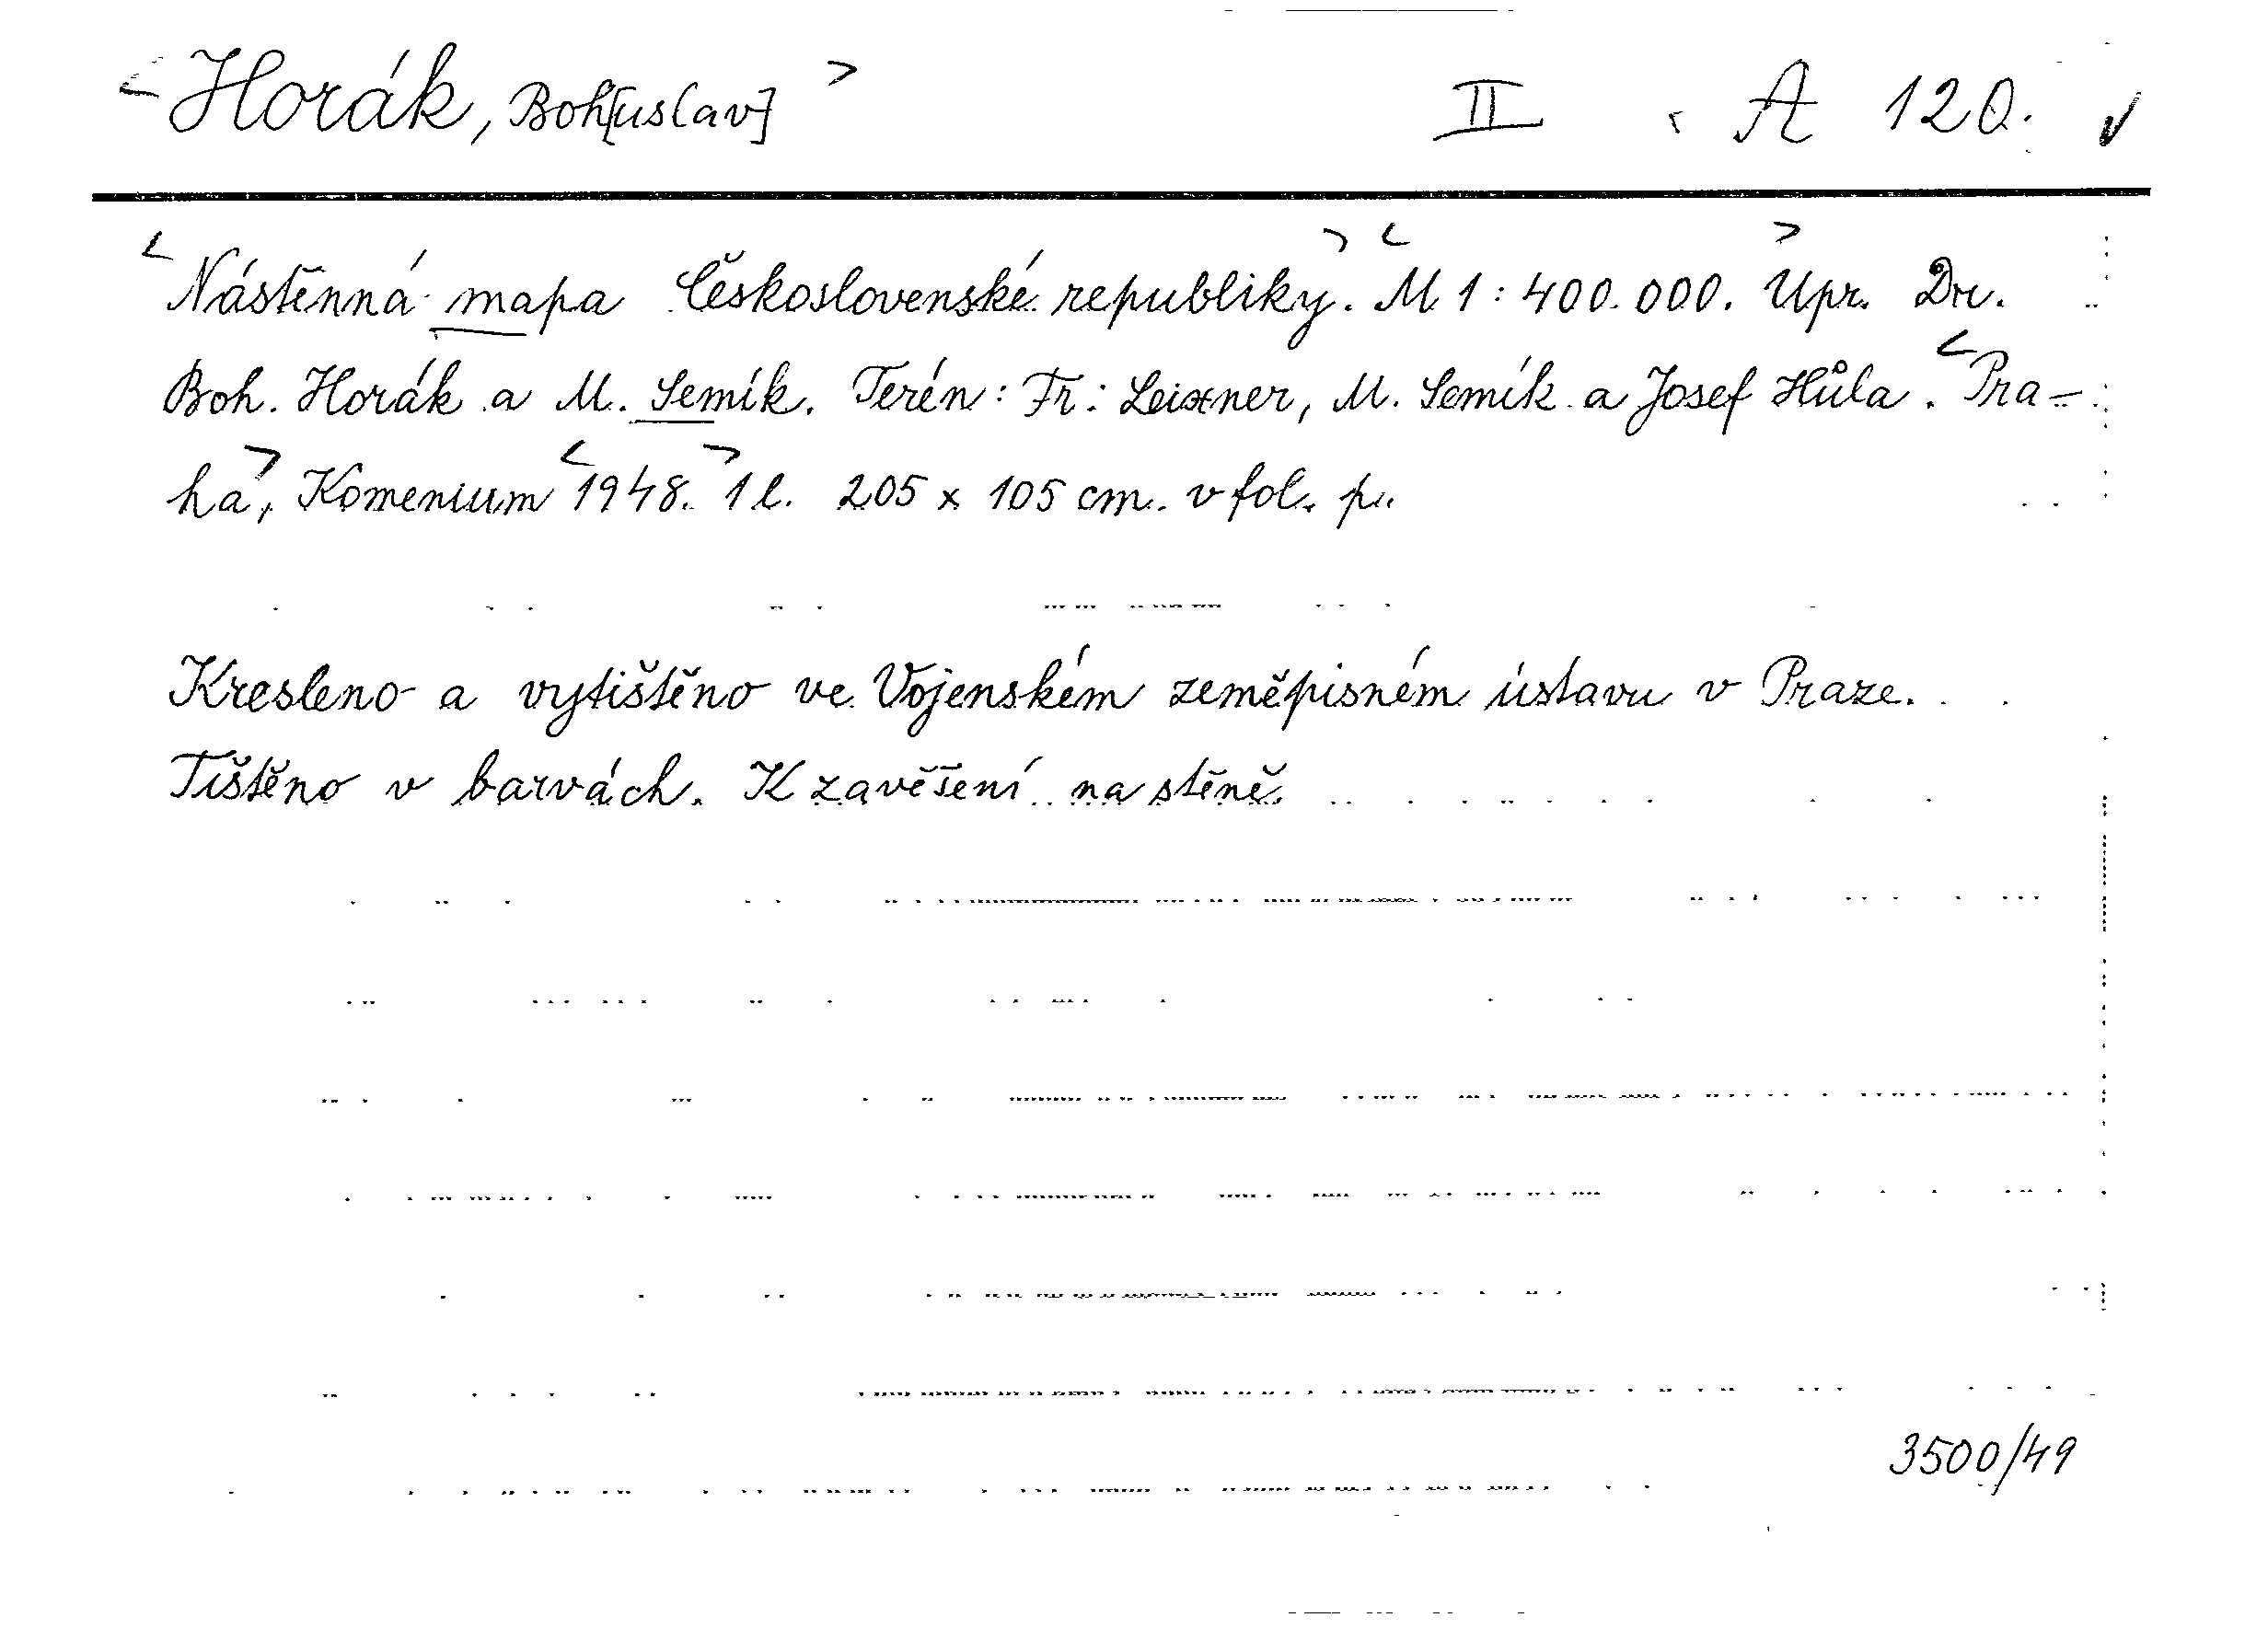 <Horák, Boh[uslav]> II A 120. v
<Nástěnná mapa Československé republiky.> <M 1:400.000.> Upr. Dr.
Boh. Horák a M. Semík. Terén: Fr. Leixner, M. Semík a Josef Hůla. <Pra-
ha>, Komenium <1948.> 1 l. 205 x 105 cm. v fol. p..
Kresleno a vytištěno ve Vojenském zeměpisném ústavu v Praze.
Tištěno v barvách. K zavěšení na stěně.
3500/49